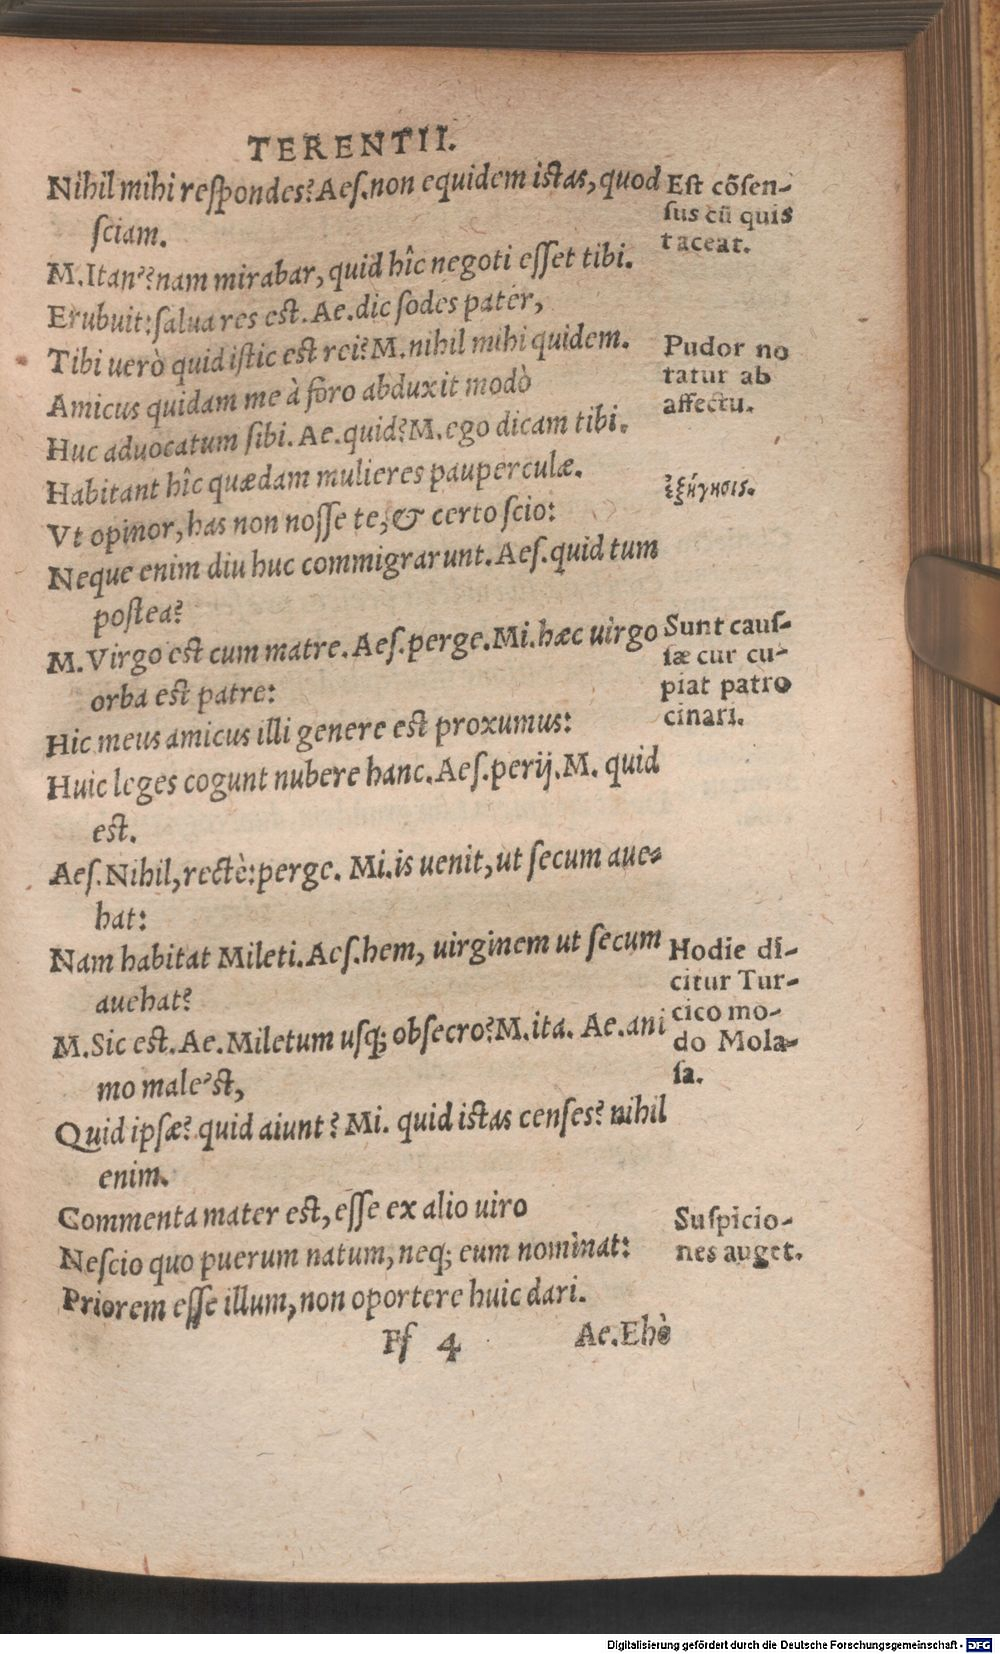 TERENTII.
Nihil mihi reſpondes? Aeſ. non equidem istas, quod
ſciam.
M. Itan'? nam mirabar, quid hîc negoti eſſet tibi.
Erubuit: ſalua res est. Ae. dic ſodes pater,
Tibi uerò quid iſtic est rei? M. nihil mihi quidem.
Amicus quidam me à foro abduxit modò
Huc aduocatum ſibi. Ae. quid? M. ego dicam tibi.
Habitant hîc quædam mulieres pauperculæ.
Vt opinor, has non noſſe te, & certo ſcio:
Neque enim diu huc commigrarunt. Aeſ. quid tum
poſtea?
M. Virgo est cum matre. Aeſ. perge. Mi. hæc uirgo
orba est patre:
Hic meus amicus illi genere est proxumus:
Huic leges cogunt nubere hanc. Aeſ. perij. M. quid
est.
Aeſ. Nihil, rectè: perge. Mi. is uenit, ut ſecum aue-
hat:
Nam habitat Mileti. Aeſ. hem, uirginem ut ſecum
auehat?
M. Sic est. Ae. Miletum uſq; obſecro? M. ita. Ae. ani
mo male'st,
Quid ipſæ? quid aiunt? Mi. quid istas cenſes? nihil
enim.
Commenta mater est, eſſe ex alio uiro
Neſcio quo puerum natum, neq; eum nominat:
Priorem eſſe illum, non oportere huic dari.
Ff 4
Ae. Ehò
Eſt cõſen-
ſus cũ quis
taceat.
Pudor no
tatur ab
affectu.
ἐξήγησις.
Sunt cauſ-
ſæ cur cu-
piat patro
cinari.
Hodie di-
citur Tur-
cico mo-
do Mola-
ſa.
Suſpicio-
nes auget.
Digitalisierung gefördert durch die Deutsche Forschungsgemeinschaft - DFG